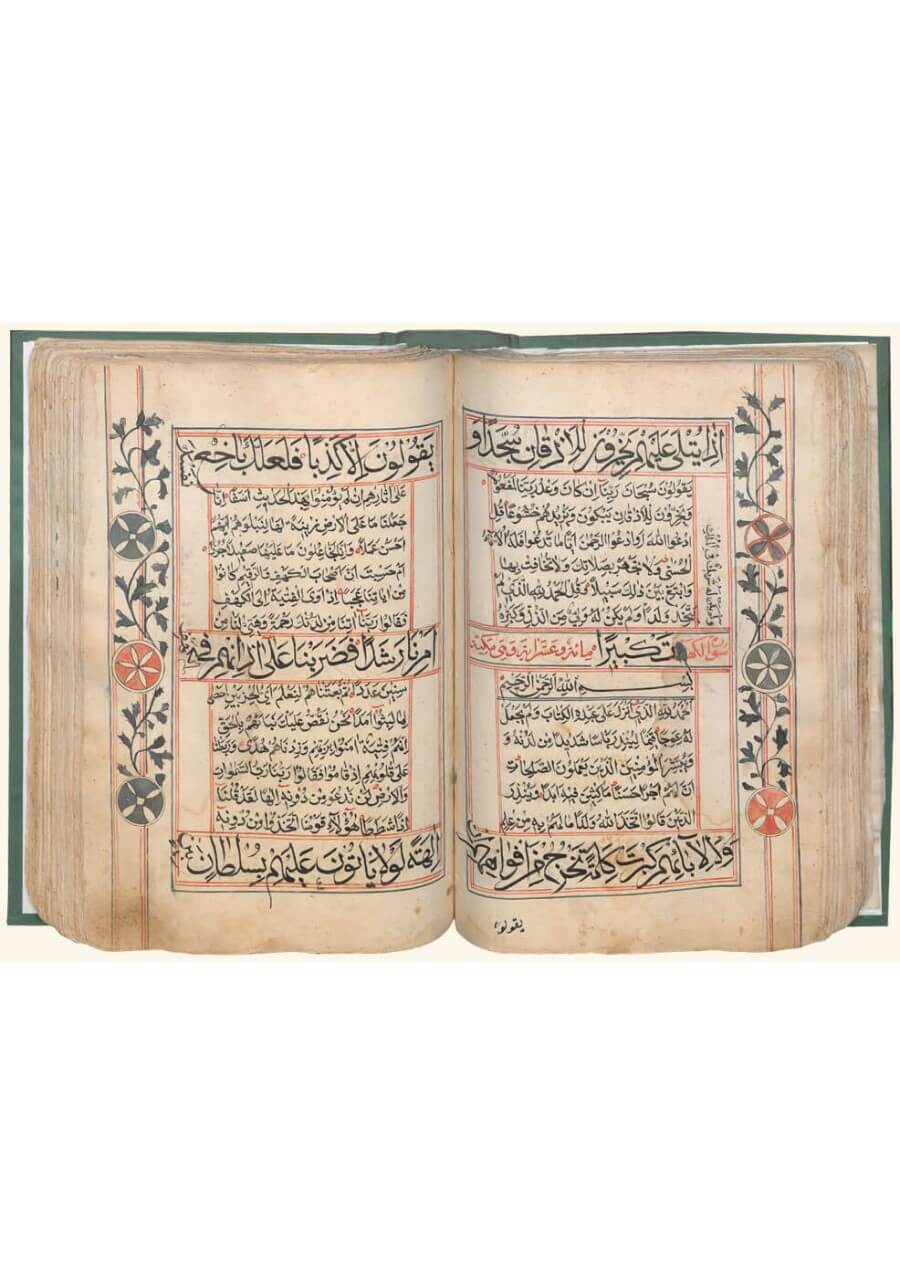 اذا يتلى عليهم يخرون للاذقان سجدا و
يقولون سبحان ربنا ان كان وعد ربنا لمفعولا
ويخرون للاذقان يبكون ويزيدهم خشوعا قل
ادعوا الله او ادعوا الرحمن ايا ما تدعوا فله الاسماء
الحسنى ولا تجهر بصلاتك ولا تخافت بها
وابتغ بين ذلك سبيلا وقل الحمد لله الذى لم
يتخذ ولدا ولم يكن له ولي من الذل وكبره
ولم يكن له شريك في الملك
تكبيرا
سورة الكهف مائة وعشر اية وهي مكية
بسم الله الرحمن الرحيم
الحمد لله الذى انزل على عبده الكتاب ولم يجعل
له عوجا قيما لينذر باسا شديدا من لدنه و
ويبشر المؤمنين الذين يعملون الصالحات
ان لهم اجرا حسنا ماكثين فيه ابدا وينذر
الذين قالوا اتخذ الله ولدا ما لهم به من علم
ولا لابائهم كبرت كلمة تخرج من افواههم ان
يقولون
يقولون الا كذبا فلعلك باخع نفسك
على اثارهم ان لم يؤمنوا بهذا الحديث اسفا انا
جعلنا ما على الارض زينة لها لنبلوهم ايهم
احسن عملا وانا لجاعلون ما عليها صعيدا جرزا
ام حسبت ان اصحاب الكهف والرقيم كانوا
من اياتنا عجبا اذ اوى الفتية الى الكهف
فقالوا ربنا اتنا من لدنك رحمة وهيئ لنا من
امرنا رشدا فضربنا على اذانهم في الكهف
سنين عددا ثم بعثناهم لنعلم اي الحزبين احصى
لما لبثوا امدا نحن نقص عليك نباهم بالحق
انهم فتية امنوا بربهم وزدناهم هدى وربطنا
على قلوبهم اذ قاموا فقالوا ربنا رب السموات
والارض لن ندعو من دونه الها لقد قلنا
اذا شططا هؤلاء قومنا اتخذوا من دونه
الهة لولا ياتون عليهم بسلطان